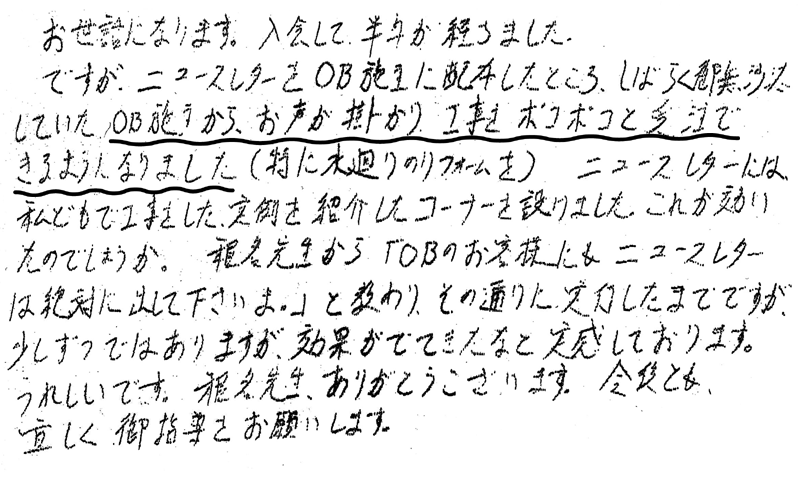 お世話になります。入会して、半年が経ちました。
ですが、ニュースレターをOB施主に配布したところ、しばらく御無沙汰
していたOB施主から、お声が掛かり、工事をポコポコと受注で
きるようになりました（特に水廻りのリフォームを）　ニュースレターには、
私どもで工事をした、実例を紹介したコーナーを設けました。これが効い
たのでしょうか。　椎名先生から「OBのお客様にも ニュースレター
は絶対に出して下さいよ。」と教わり、その通りに実行したまでですが、
少しずつではありますが、効果がでてきたなと実感しております。
うれしいです。椎名先生、ありがとうございます。今後とも、
宜しく御指導をお願いします。